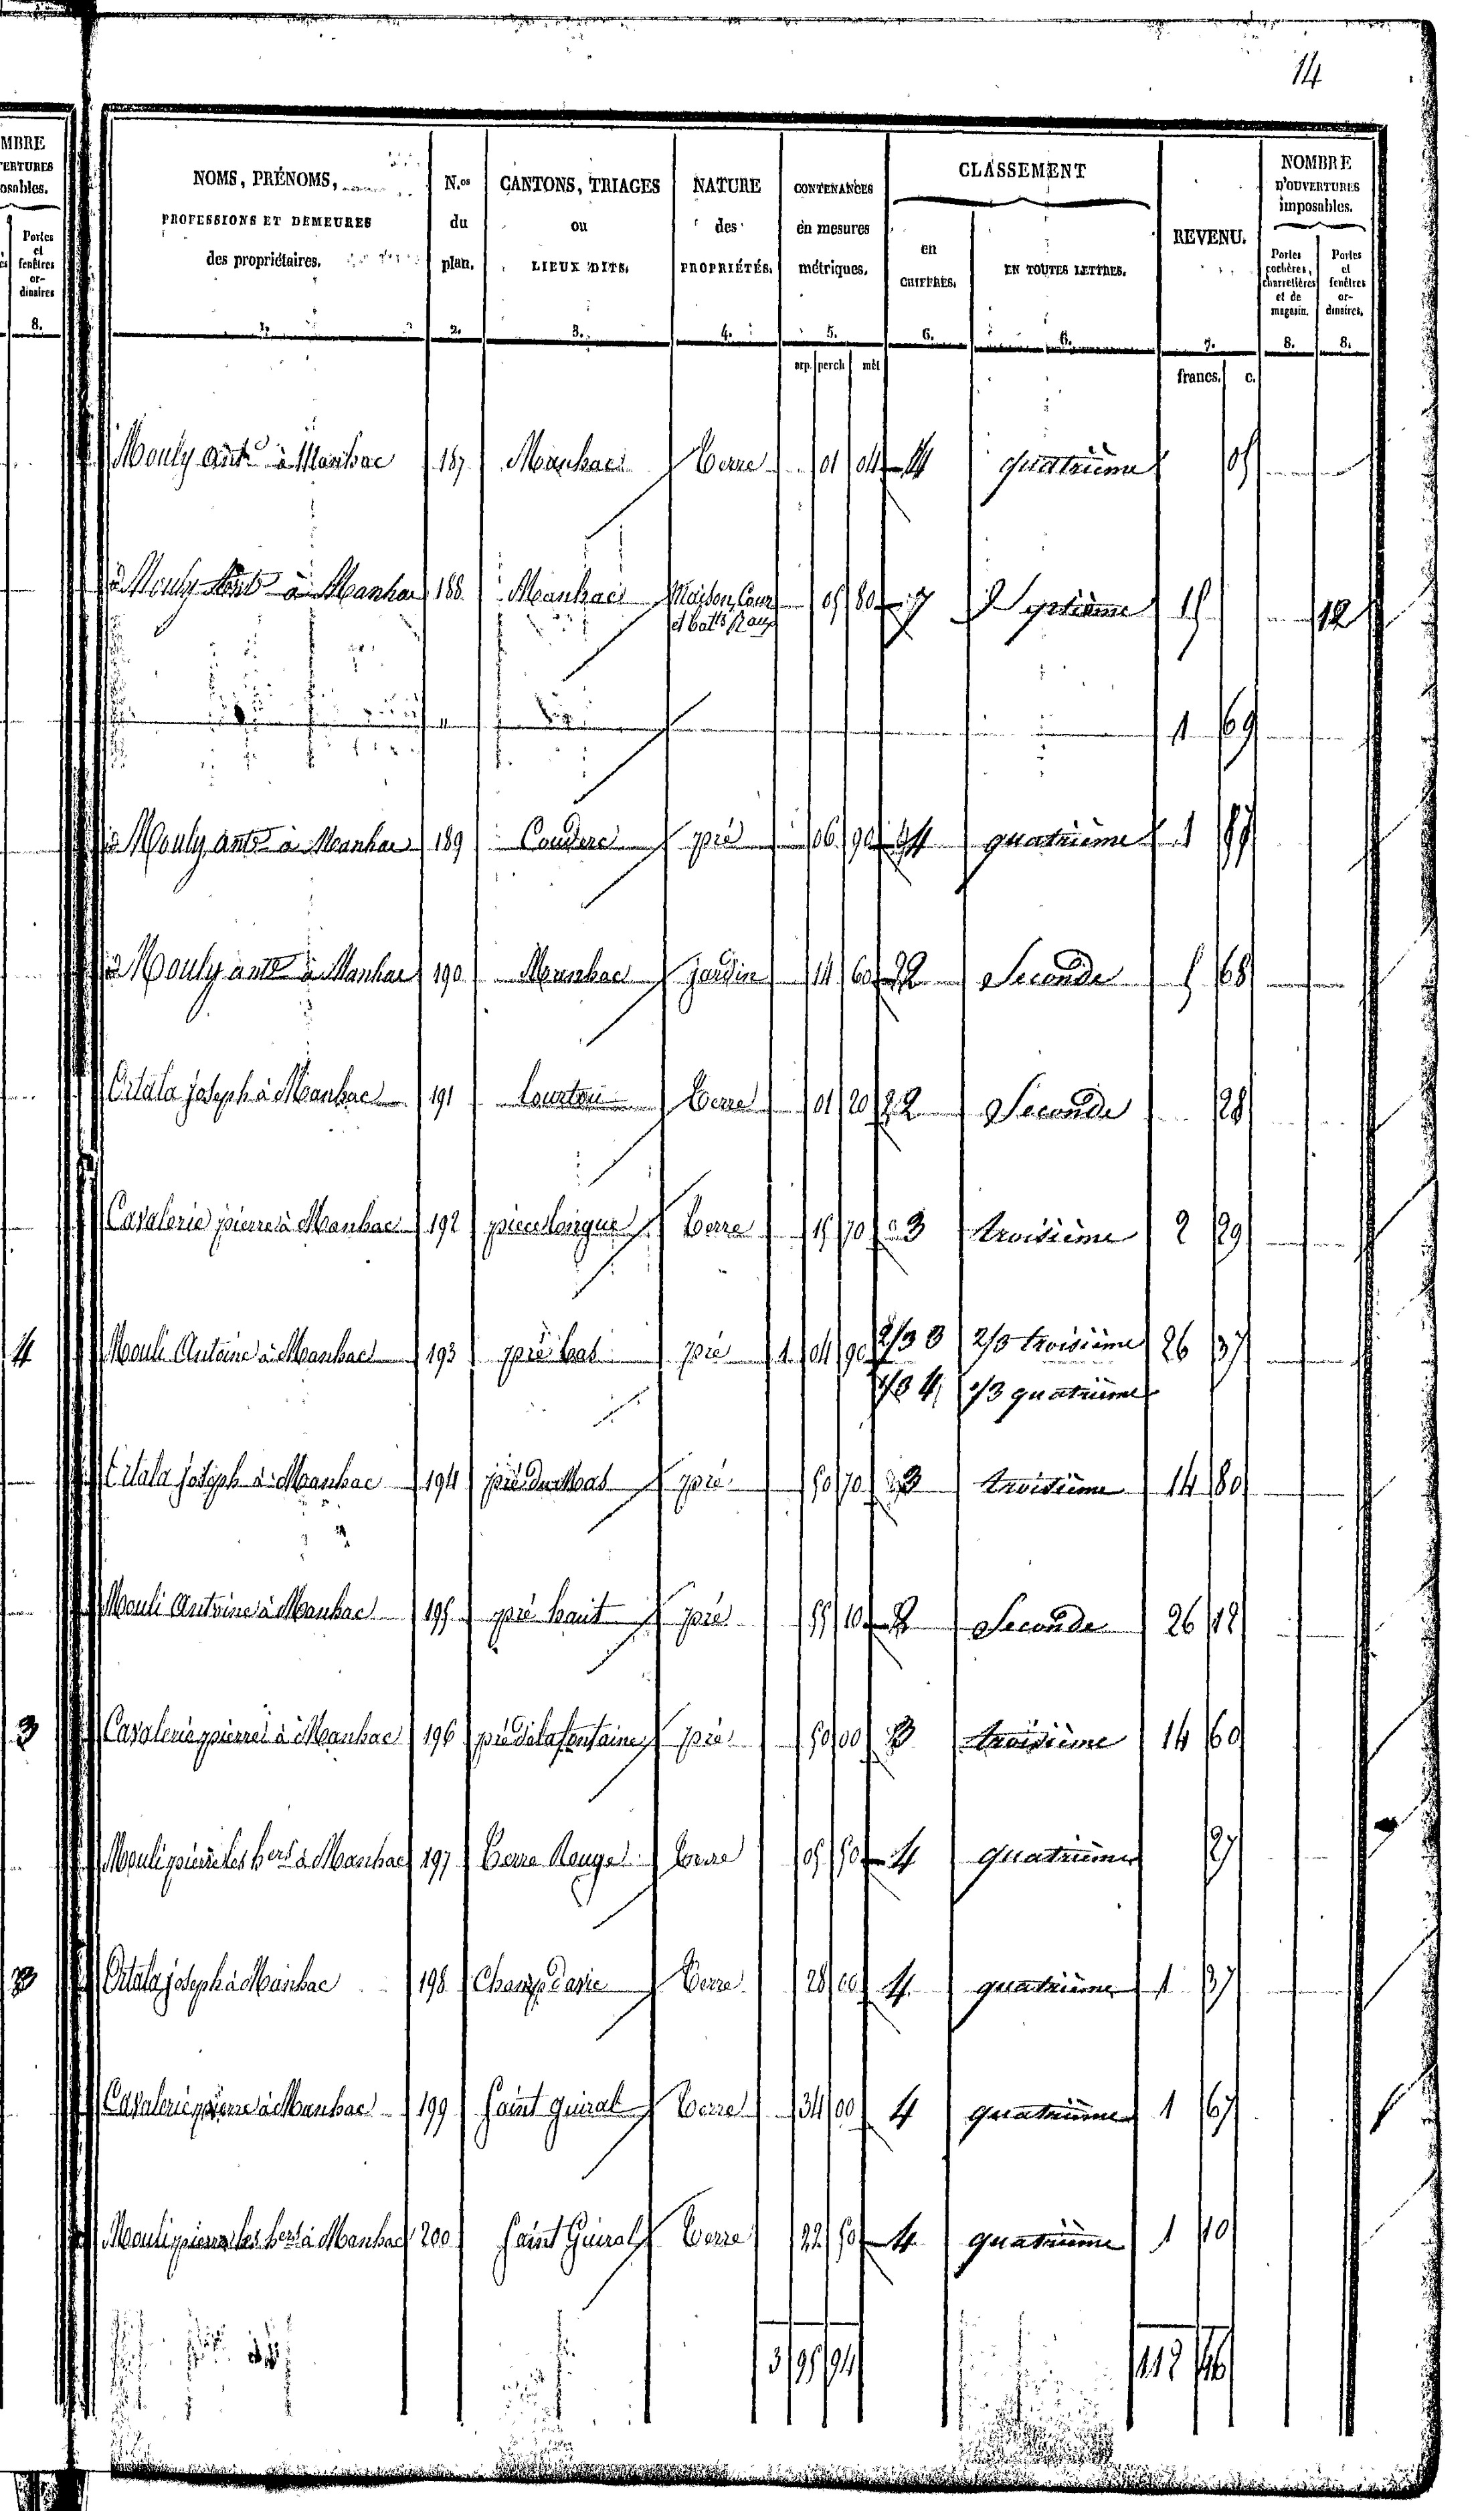 14
MBRE
Portes
et
fenêtres
or-
dinaires
8.
4
3
3
NOMS, PRÉNOMS,
PROFESSIONS ET DEMEURES
des propriétaires.
1.
N.os
du
plan.
2.
CANTONS, TRIAGES
ou
LIEUX DITS.
3.
NATURE
des
PROPRIÉTÉS.
4.
CONTENANCES
en mesures
métriques.
5.
arp. perch. mèt
CLASSEMENT
en
CHIFFRES.
6.
EN TOUTES LETTRES.
6.
REVENU.
7.
francs. c.
NOMBRE
D'OUVERTURES
imposables.
Portes
cochères,
charretières
et de
magasin.
8.
Portes
et
fenêtres
or-
dinaires.
8.
Mouly ant.e à Manhac 187 Manhac Terre 01 04 4 quatrième 05
Mouly ant.e à Manhac 188 Manhac Maison, Cour 05 80 7 Septième 15 12
et bat.ts
" 1 69
Mouly ant.e à Manhac 189 Couderc pré 06 90 4 quatrième 1
Mouly ant.e à Manhac 190 Manhac jardin 14 60 2 Seconde 5 68
joseph à Manhac 191 Terre 01 20 2 Seconde 28
Cavalerie pierre à Manhac 192 piece longue Terre 15 70 3 troisième 2 29
Mouli Antoine à Manhac 193 pré bas pré 1 04 90 2/3 3 2/3 troisième 26 37
1/3 4 1/3 quatrième
joseph à Manhac 194 pré du Mas pré 50 70 3 troisième 14 80
Mouli Antoine à Manhac 195 pré haut pré 55 10 2 Seconde 26 12
Cavalerie pierre à Manhac 196 pré de la fontaine pré 50 00 3 troisième 14 60
Mouli pierre les hers à Manhac 197 Terre Rouge Terre 05 50 4 quatrième 27
joseph à Manhac 198 Champ Terre 28 00 4 quatrième 1 37
Cavalerie pierre à Manhac 199 Saint guiral Terre 34 00 4 quatrième 1 67
Mouli pierre les hers à Manhac 200 Saint Guiral Terre 22 50 4 quatrième 1 10
3 95 94 112 46